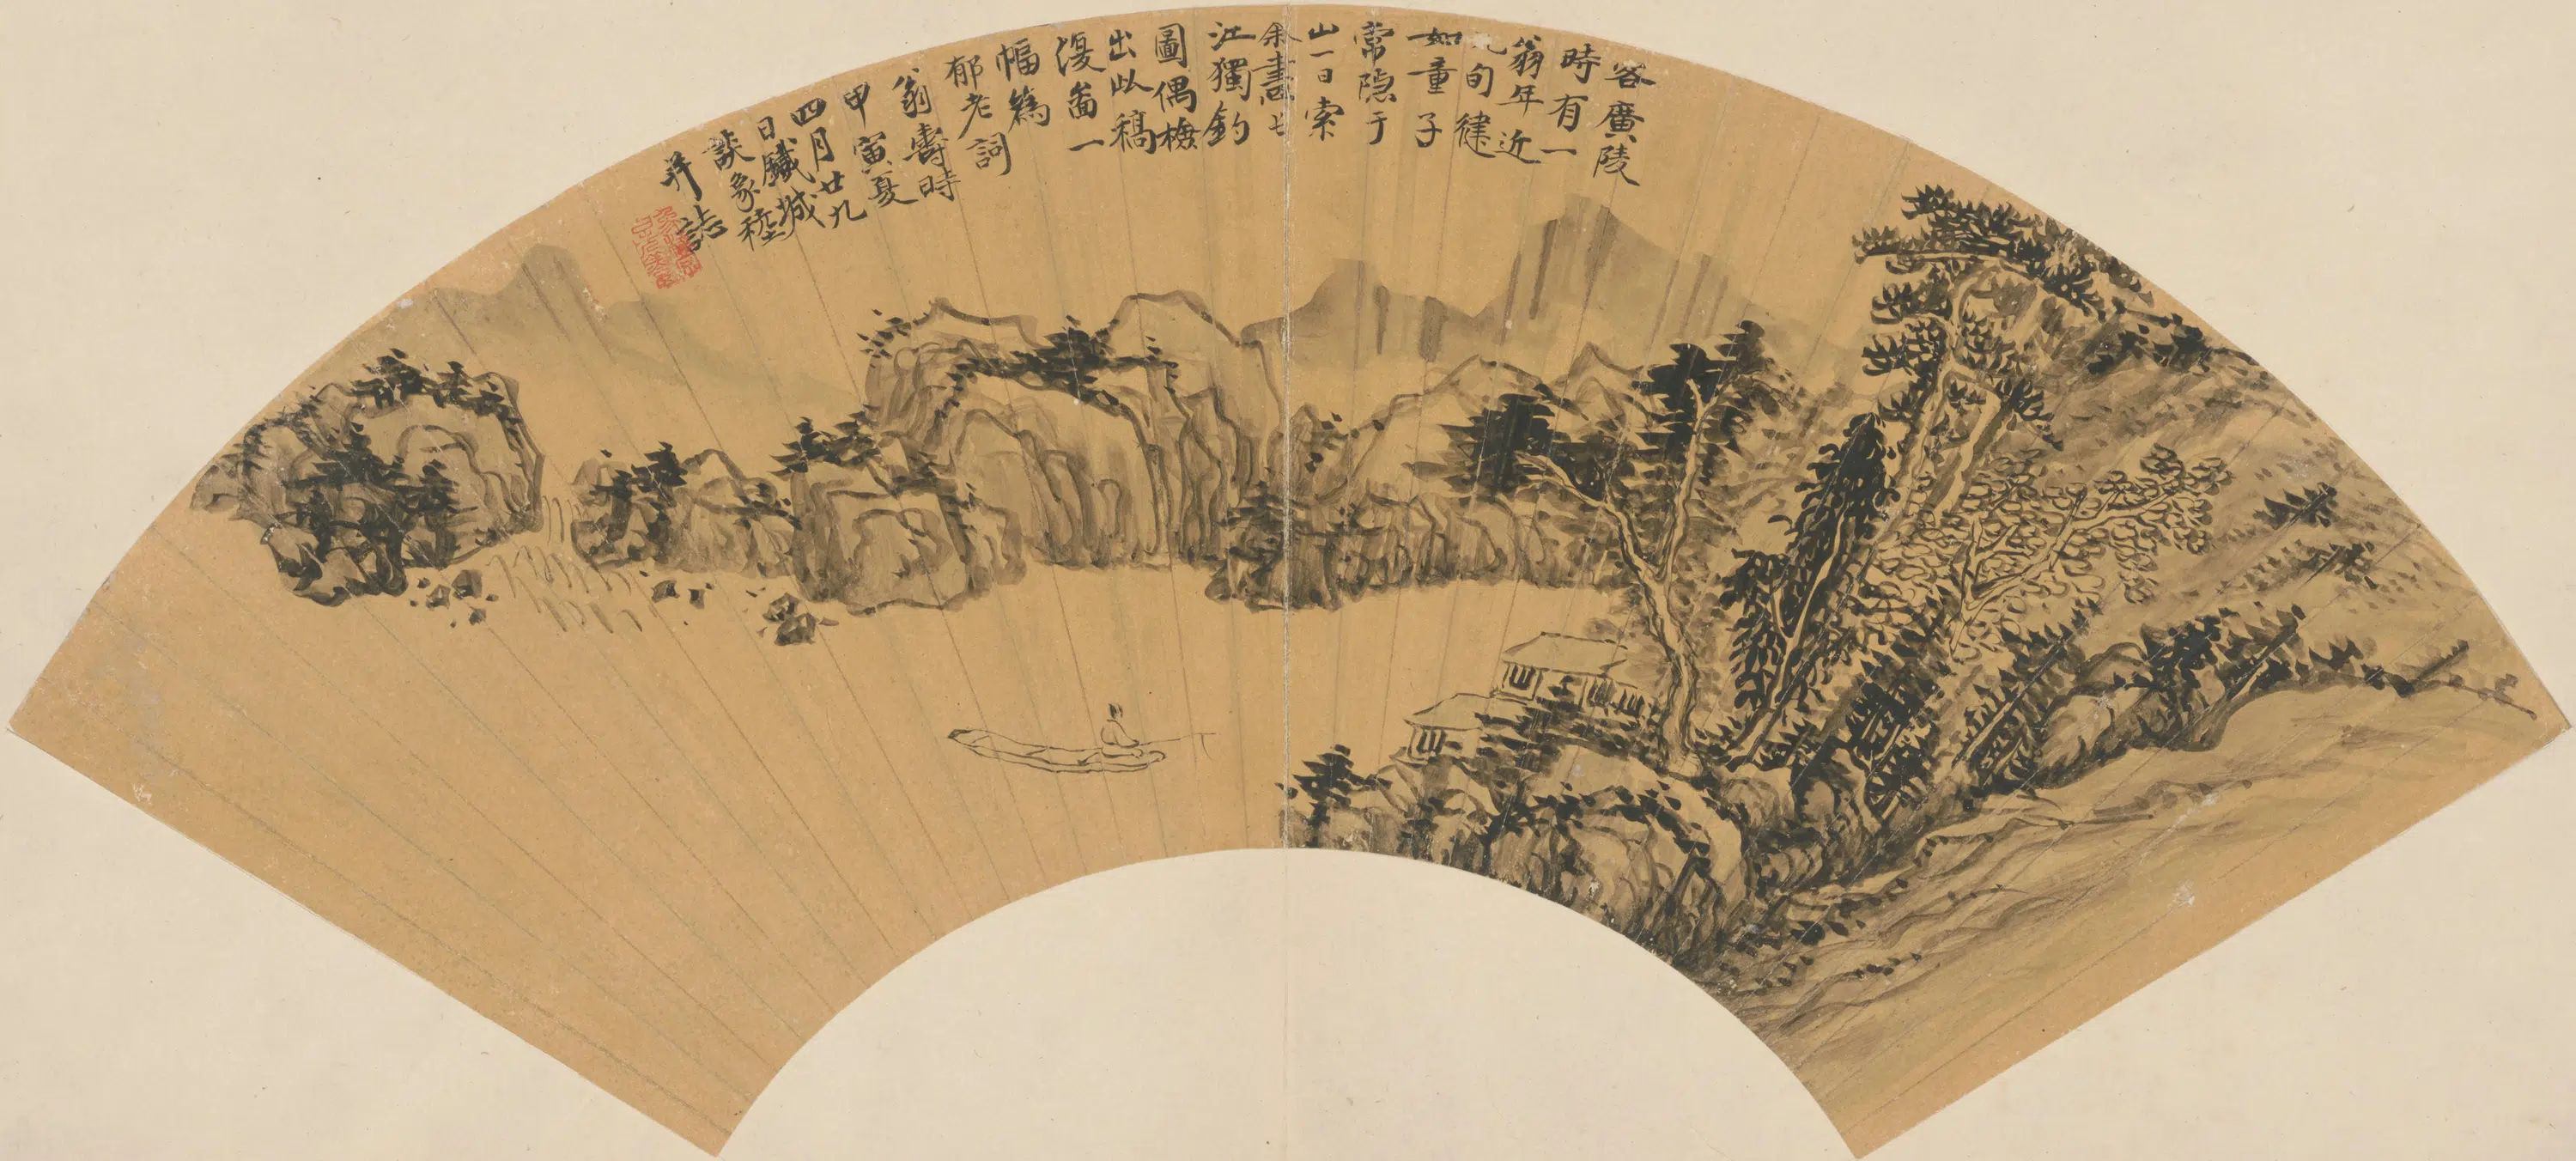 客廣陵
時有一
翁年近
九旬健
如童子
常隐于
山一日索
余畫長
江獨釣
圖偶檢
出此稿
復畣一
幅為
郁老詞
翁壽時
甲寅夏
四月廿九
日鐵城
談象稑
并誌